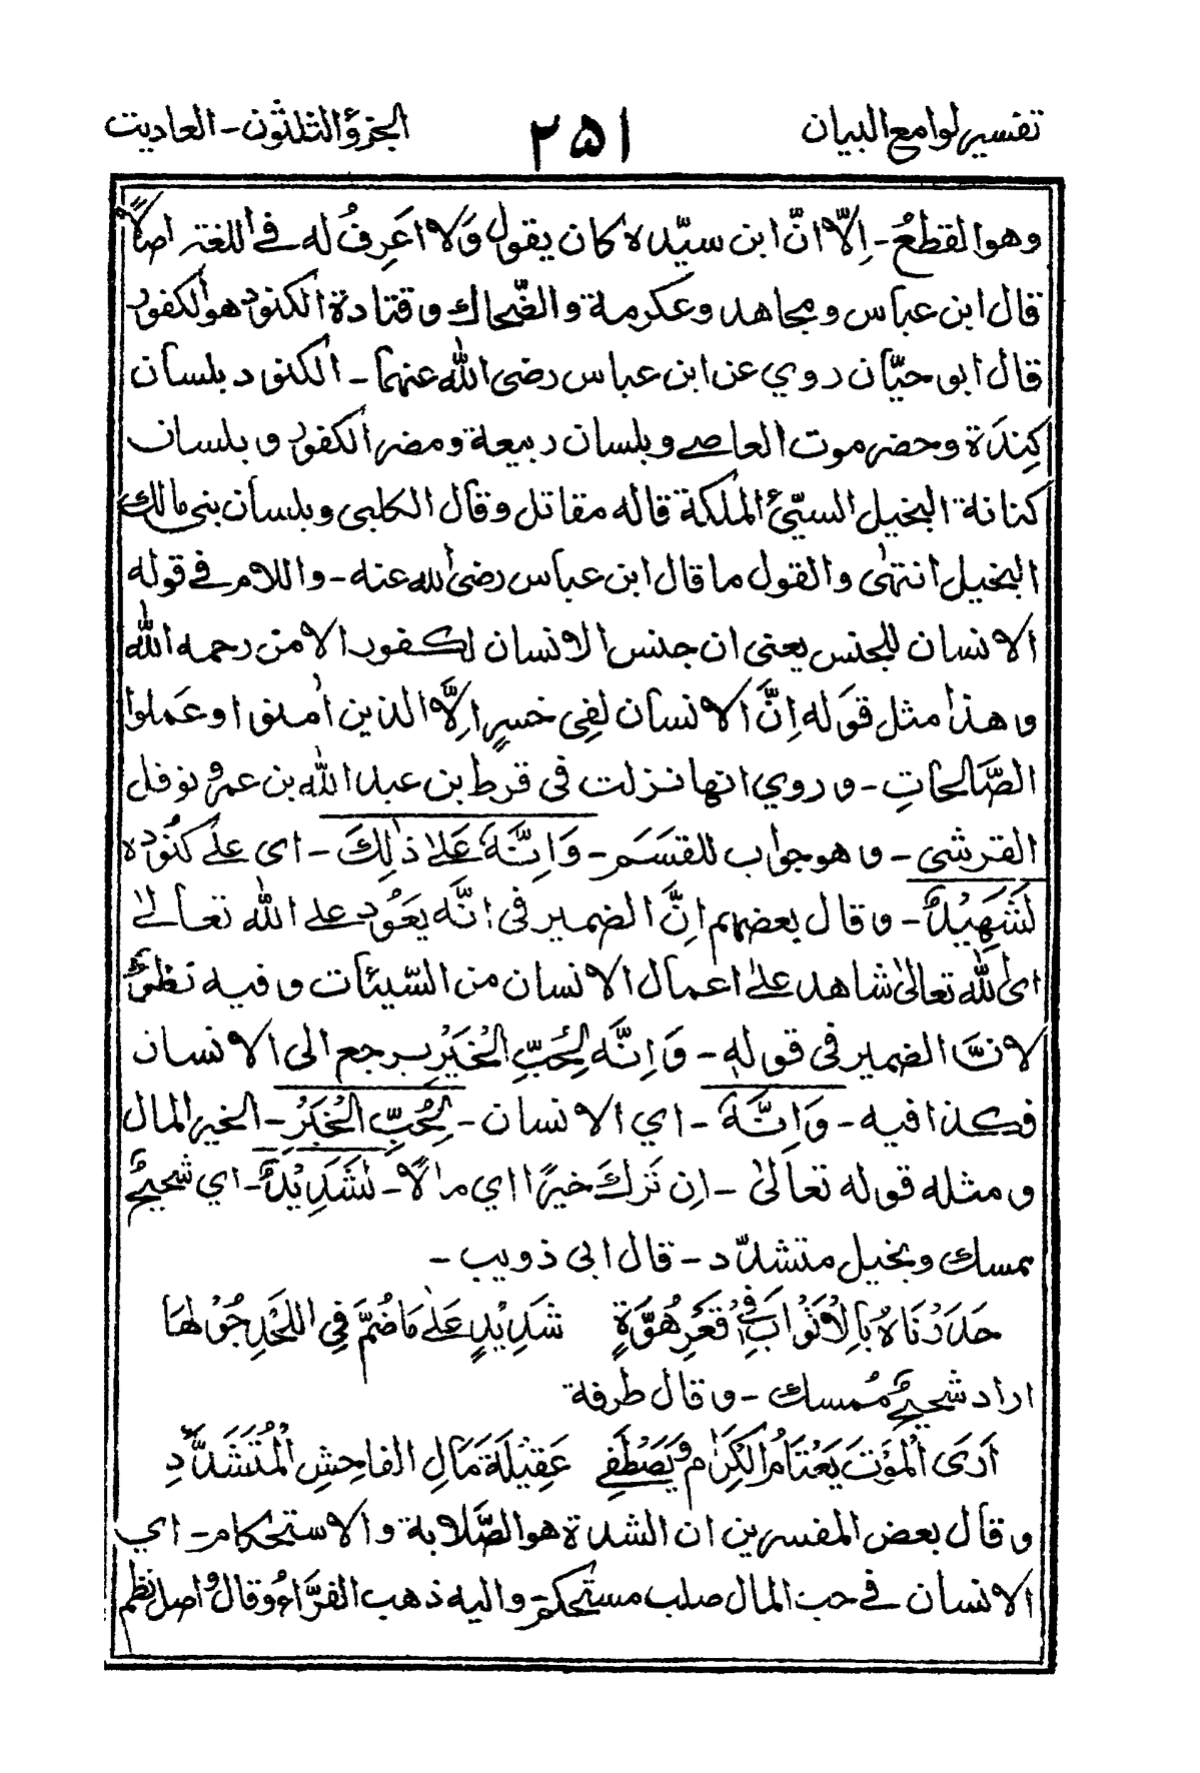 تفسير لوامع البيان ٢٥١ الجزؤ الثلثون - العاديت
وهو القطعُ - اِلّا انّ ابن سيّده كان يقول وَلا اَعرِفُ له في اللغته اصلاً
قال ابن عباس ومجاهد وعكرمة والضّحاك وقتادة الكنود هو الكفور
قال ابو حيّان روي عن ابن عباس رضى الله عنهما - الكنود بلسان
كِندَة وحضرموت العاصي وبلسان ربيعة ومضر الكفور وبلسان
كنانة البخيل السيّئُ الملكة قاله مقاتل وقال الكلبي وبلسان بني مالك
البخيل انتهٰى والقول ما قال ابن عباس رضى الله عنه - واللام في قوله
الانسان للجنس يعنى ان جنس الانسان لكفور الا من رحمه الله
وهذا مثل قوَله اِنَّ الانسان لفِى خسرٍ اِلَّا الذين اٰمنوا وعَملوا
الصَّالحاتِ - وروي انها نزلت فى قرط بن عبد الله بن عمرو نوفل
القرشى - وهو جواب للقسَم - وَاِنَّهٗ عَلىٰ ذٰلِكَ - اى على كنُوده
لَشَهِيْدٌ - وقال بعضهم اِنَّ الضمير فى انَّه يعَوُد على الله تعالىٰ
اى الله تعالىٰ شاهد على اعمال الانسان من السّيئات وفيه نظرٌ
لانَّ الضمير فى قوله - وَاِنَّه لِحُبِّ الْخَيْرِ يرجع الى الانسان
فكذا فيه - وَاِنَّهٗ - اي الانسان - لِحُبِّ الْخَيْرِ - الخير المال
ومثله قوله تعالىٰ - اِن تَركَ خيرًا اي مالًا - لَشَدِيْدٌ - اي شحيحٌ
بمسك وبخيل متشدّد - قال ابى ذويب -
حَدَدْنَاهُ بِالْاَثْوَابِ فِيْ قَعْرِ هُوَّةٍ شَدِيْدٍ عَلىٰ مَا ضُمَّ فِي اللَّحْدِ جُوْلهَا
اراد شحيحٌ مُمسك - وقال طرفة
اَرَى الْمَوْتَ يَعْتَامُ الْكِرَامَ وَيَصْطَفِي عَقِيْلَةَ مَالِ الفاحِشِ الْمُتَشَدَّدِ
وقال بعض المفسرين ان الشدة هو الصَّلابة والاستحكام - اي
الانسان في حب المال صلب مستحكم - واليه ذهب الفرَّاءُ وقال واصل نظم